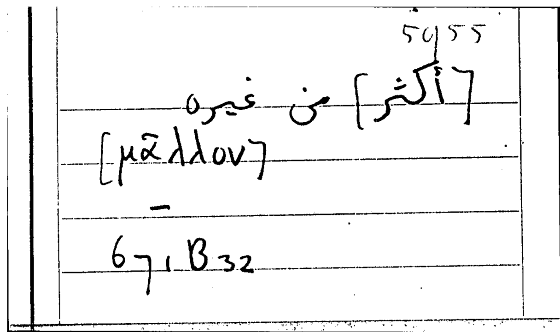 [أكثر] من غيره
[μᾶλλον]
–
671 B 32